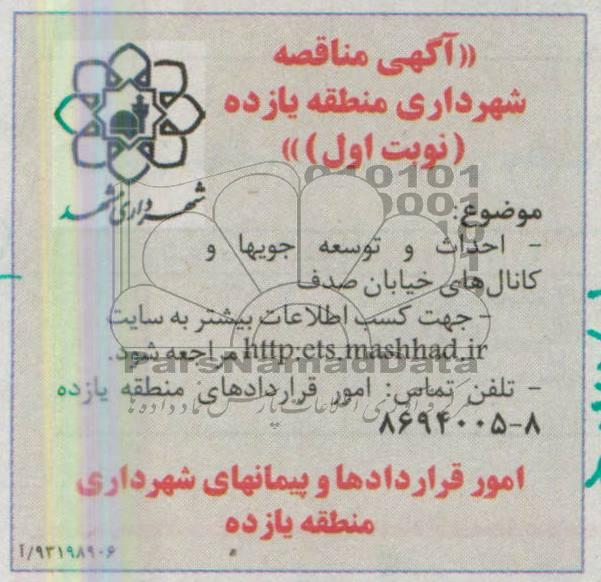 «آگهی مناقصه
شهرداری منطقه یازده
(نوبت اول)»
شهرداری مشهد
موضوع:
- احداث و توسعه جویها و
کانال‌های خیابان صدف
- جهت کسب اطلاعات بیشتر به سایت
http:ets.mashhad.ir مراجعه شود.
ParsNamadData
- تلفن تماس: امور قراردادهای منطقه یازده
۸۶۹۴۰۰۵-۸
امور قراردادها و پیمانهای شهرداری
منطقه یازده
۹۳۱۹۸۹۰۶/آ